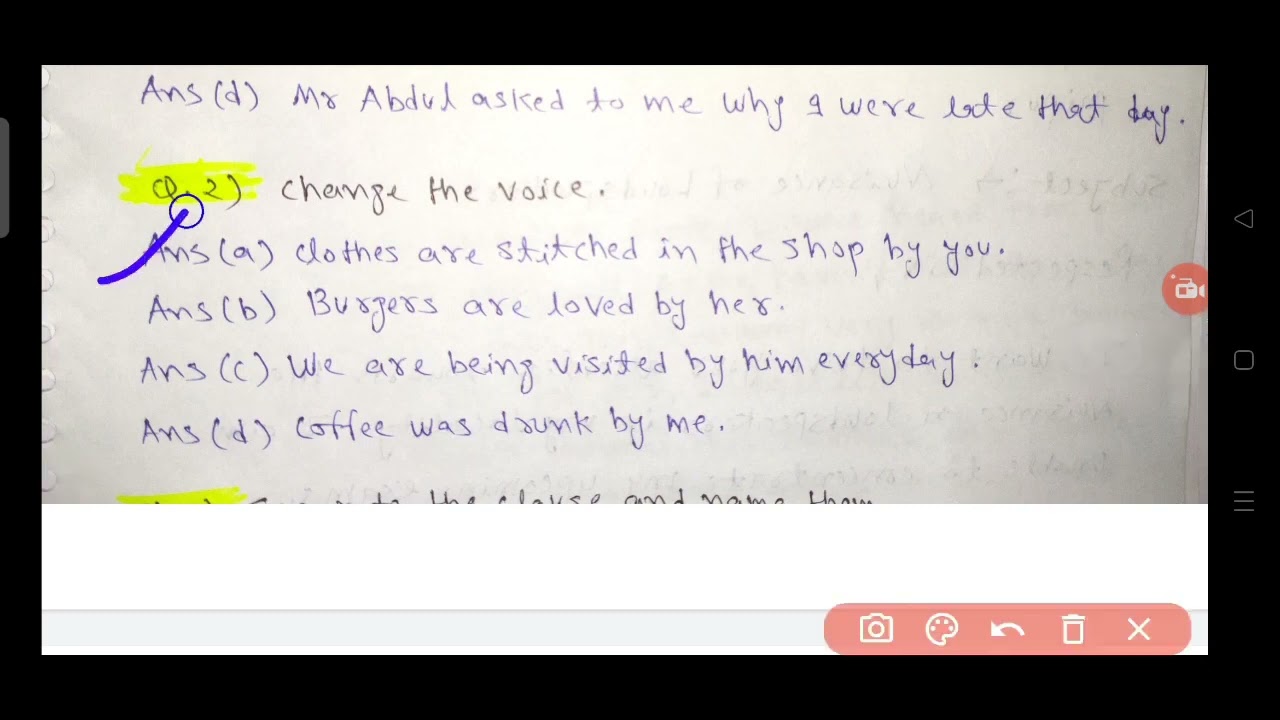 Ans (d) Mr Abdul asked to me why I were late that day.
Q. 2) change the voice.
Ans (a) clothes are stitched in the shop by you.
Ans (b) Burgers are loved by her.
Ans (c) We are being visited by him everyday.
Ans (d) Coffee was drunk by me.
the clause and name them